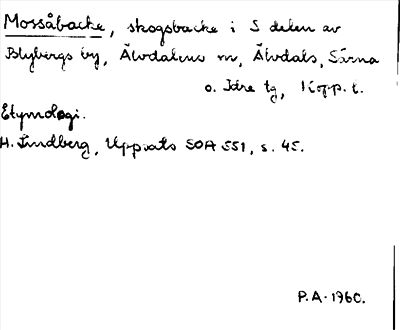 Mossåbacke, skogsbacke i S delen av
Blybergs by, Älvdalens sn, Älvdals, Särna
o. Idre tg, Kopp. l.
Etymologi.
H. Lindberg, Uppsats SOA 551, s. 45.
P.A. 1960.